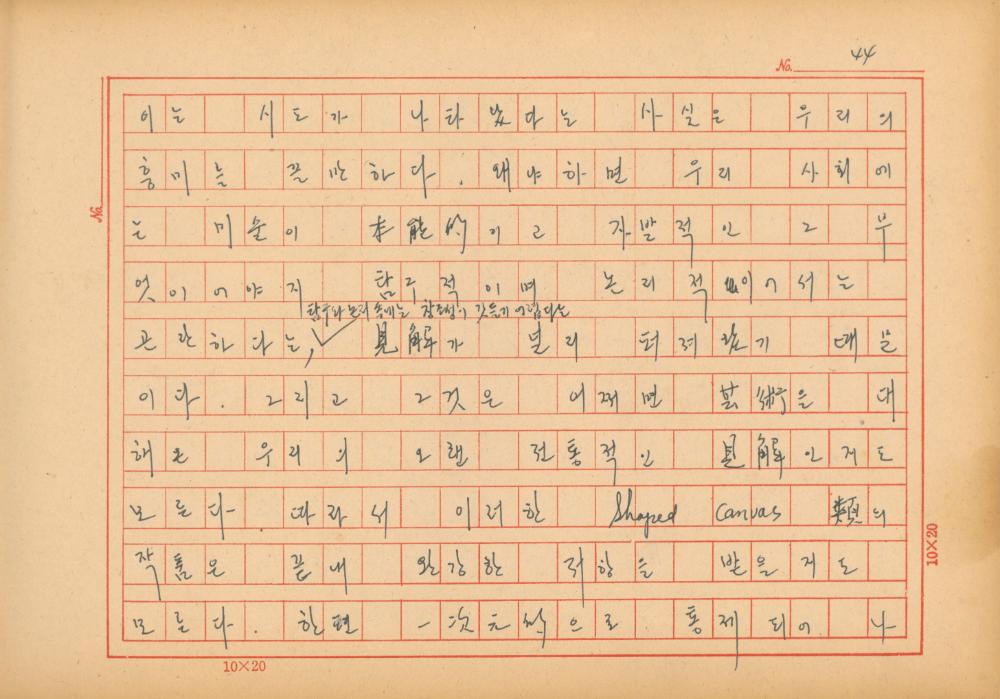 No. 44
이는 시도가 나타났다는 사실은 우리의
흥미를 끌만하다. 왜냐하면 우리 사회에
는 미술이 本能的이고 자발적인 그 무
엇이어야지 탐구적이며 논리적이어서는
탐구와 논리 속에는 창조성이 깃들기 어렵다는
곤란하다는, 見解가 널리 퍼져있기 때문
이다. 그리고 그것은 어쩌면 芸術을 대
해온 우리의 오랜 전통적인 見解인지도
모른다. 따라서 이러한 Shaped Canvas 類의
작품은 끝내 완강한 저항을 받을지도
모른다. 한편 一次元的으로 통제되어 나
No.
10×20
10×20